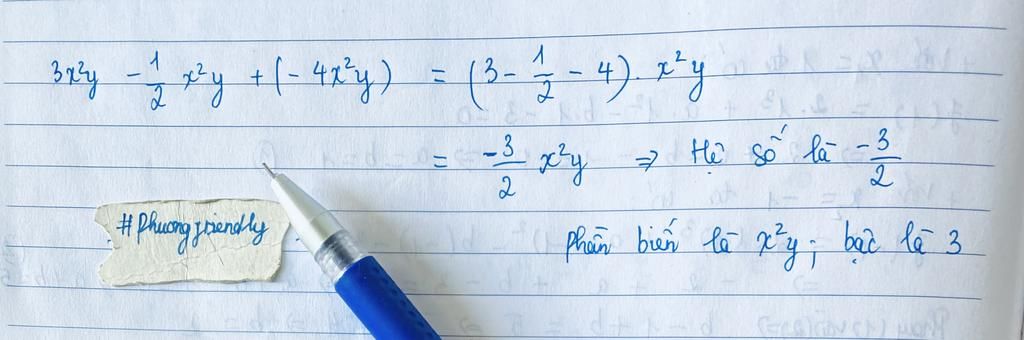 3x²y - 1/2 x²y + (- 4x²y) = (3 - 1/2 - 4). x²y
= -3/2 x²y ⇒ Hệ số là -3/2
#Phuongfriendly
phần biến là x²y; bậc là 3